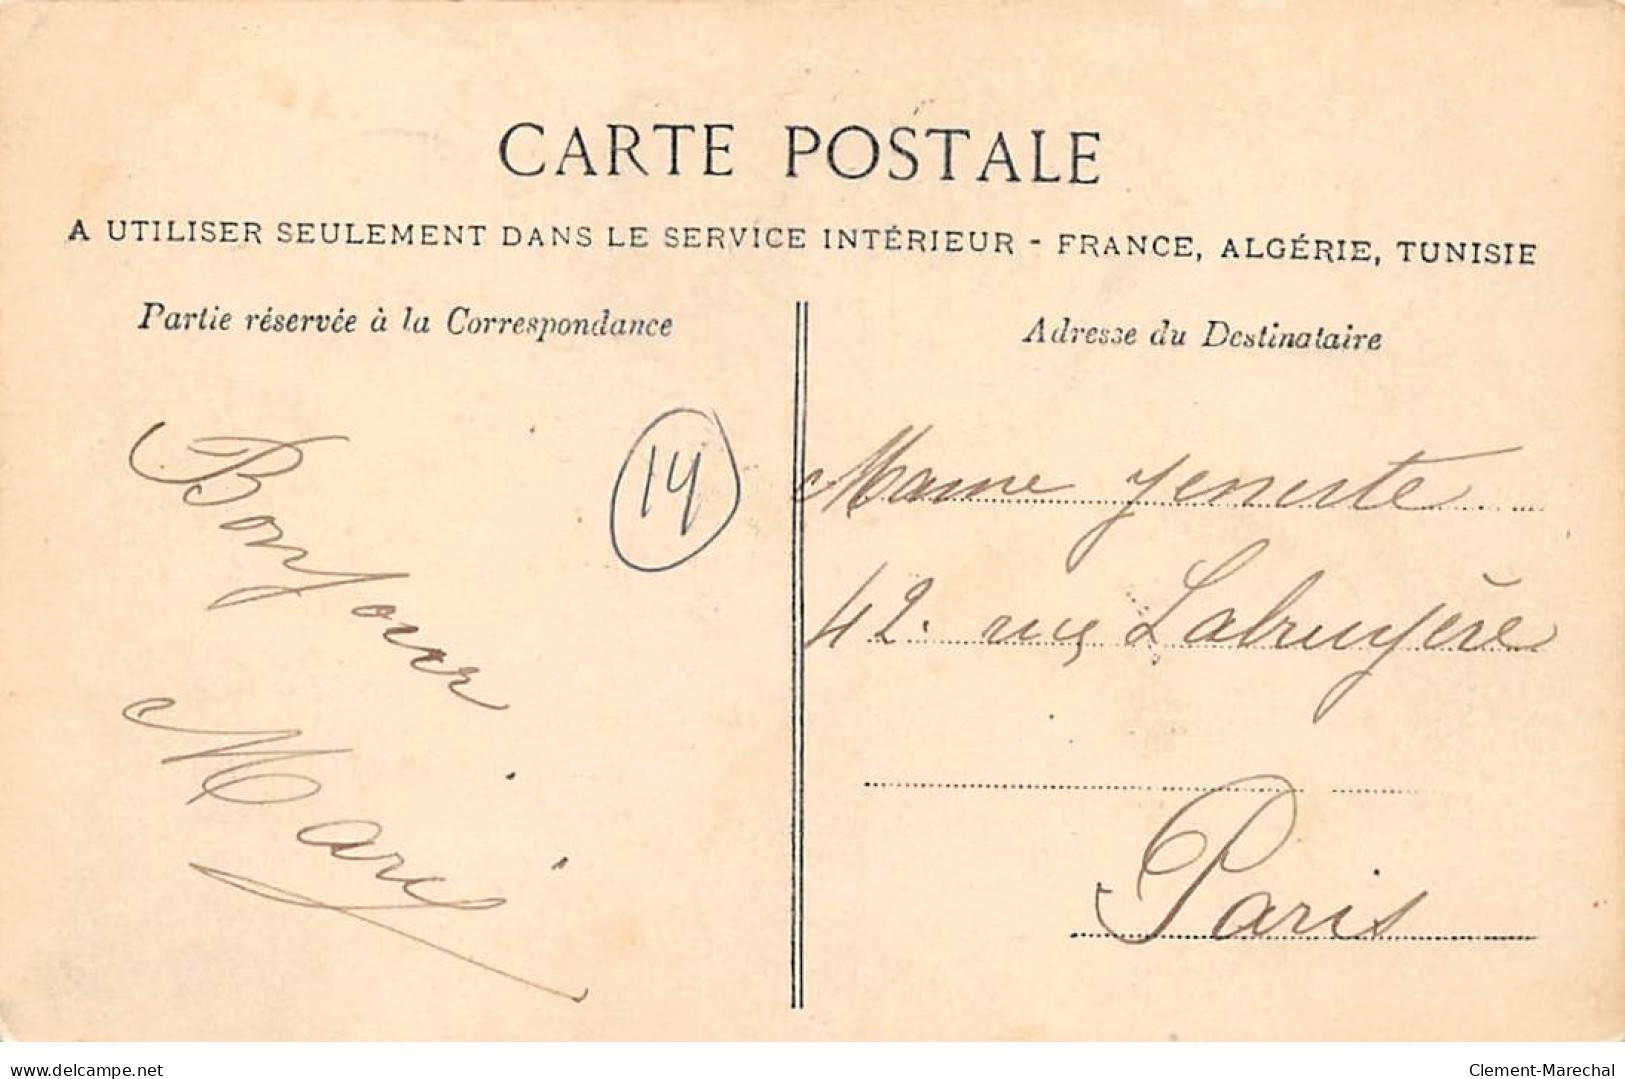 CARTE POSTALE
A UTILISER SEULEMENT DANS LE SERVICE INTÉRIEUR - FRANCE, ALGÉRIE, TUNISIE
Partie réservée à la Correspondance
Bonjour
14
Adresse du Destinataire
42. rue Labruyère
Paris
www.delcampe.net
Clement-Marechal